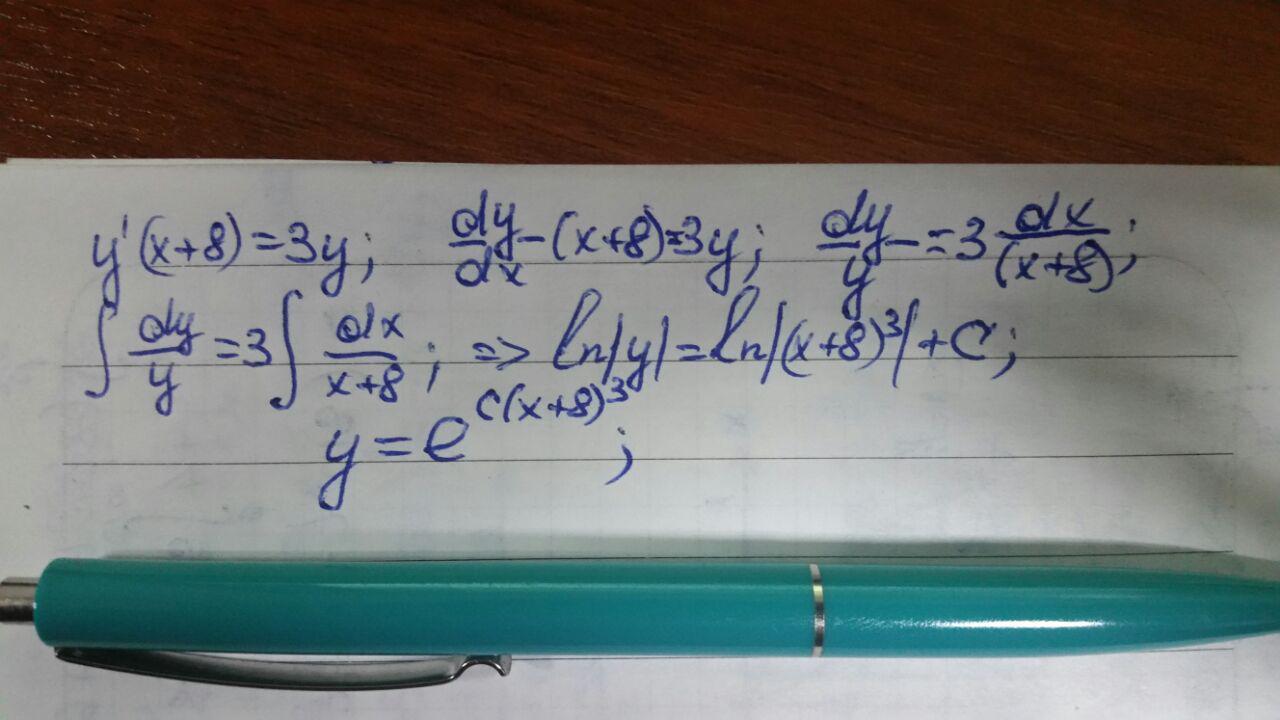 y'(x+8)=3y; dy/dx (x+8)=3y; dy/y = 3 dx/(x+8);
∫ dy/y = 3 ∫ dx/x+8; => ln|y| = ln|(x+8)³| + C;
y = e^C(x+8)³;